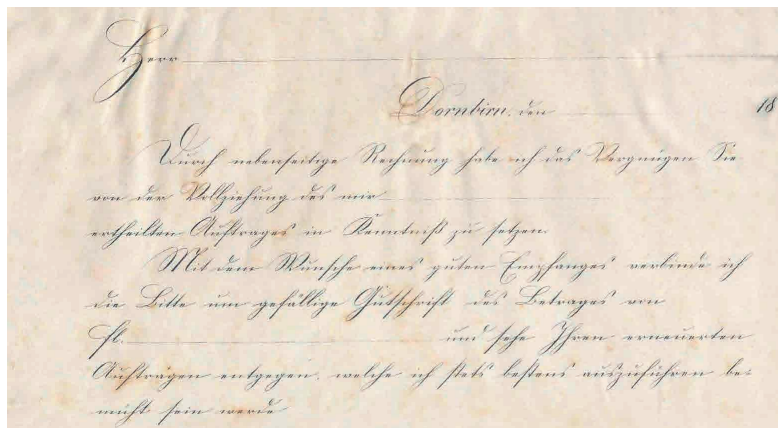 Herr
Dornbirn, den 18
Durch nebenseitige Rechnung habe ich das Vergnügen Sie
von der Vollziehung des mir
ertheilten Auftrages in Kenntniß zu setzen.
Mit dem Wunsche eines guten Empfanges verbinde ich
die Bitte um gefällige Gutschrift des Betrages von
fl. und sehe Ihren erneuerten
Aufträgen entgegen, welche ich stets bestens auszuführen be-
müht sein werde